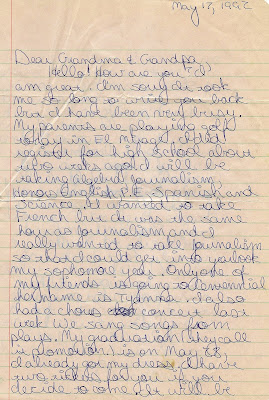 May 17, 1992
Dear Grandma & Grandpa,
Hello! How are you? I
am great. I'm sorry it took
me so long to write you back
but I have been very busy.
My parents are playing golf
today in El Mirage. I had
register for high school about
two weeks ago. I will be
taking algebra, journalism
honors English, P.E., Spanish, and
science. I wanted to take
French but it was the same
hour as journalism and I
really wanted to take journalism
so that I could get into yearbook
my sophomore year. Only one of
my friends is going to Centennial
her name is
had a chorus concert last
week. We sang songs from
plays. My graduation (they call
it promotion) is on May 28
I already got my dress. I have
two tickets for you if you
decide to come. It will be